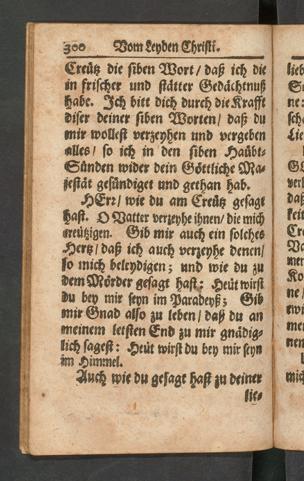 300 Vom Leyden Christi.
Creütz die siben Wort / daß ich die
in frischer und stätter Gedächtnuß
habe. Ich bitt dich durch die Krafft
diser deiner siben Worten / daß du
mir wollest verzeyhen und vergeben
alles / so ich in den siben Haübt-
Sünden wider dein Göttliche Ma-
jestät gesündiget und gethan hab.
HErr / wie du am Creütz gesagt
hast. O Vatter verzeyhe ihnen / die mich
creützigen. Gib mir auch ein solches
Hertz / daß ich auch verzeyhe denen /
so mich beleydigen; und wie du zu
dem Mörder gesagt hast: Heüt wirst
du bey mir seyn im Paradeyß; Gib
mir Gnad also zu leben / daß du an
meinem letsten End zu mir gnädig-
lich sagest: Heüt wirst du bey mir seyn
im Himmel.
Auch wie du gesagt hast zu deiner
lie-